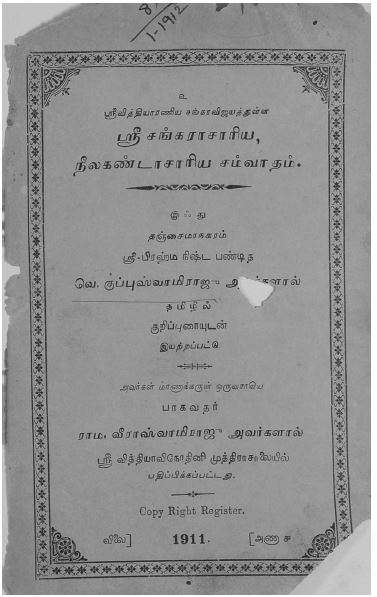 8
1-1912
உ
ஸ்ரீவித்தியாரணிய சங்கரவிஜயத்துள்ள
ஸ்ரீ சங்கராசாரிய,
நீலகண்டாசாரிய சம்வாதம்.
இஃது
தஞ்சைமாநகரம்
ஸ்ரீ-பிரஹ்ம நிஷ்ட பண்டித
வெ. குப்புஸ்வாமிராஜு அவர்களால்
தமிழில்
குறிப்புரையுடன்
இயற்றப்பட்டு
அவர்கள் மாணாக்கருள் ஒருவராகிய
பாகவதர்
ராம. வீராஸ்வாமிராஜு அவர்களால்
ஸ்ரீ வித்தியாவிநோதினி முத்திராசாலையில்
பதிப்பிக்கப்பட்டது.
Copy Right Register.
விலை] 1911. [அணா ச